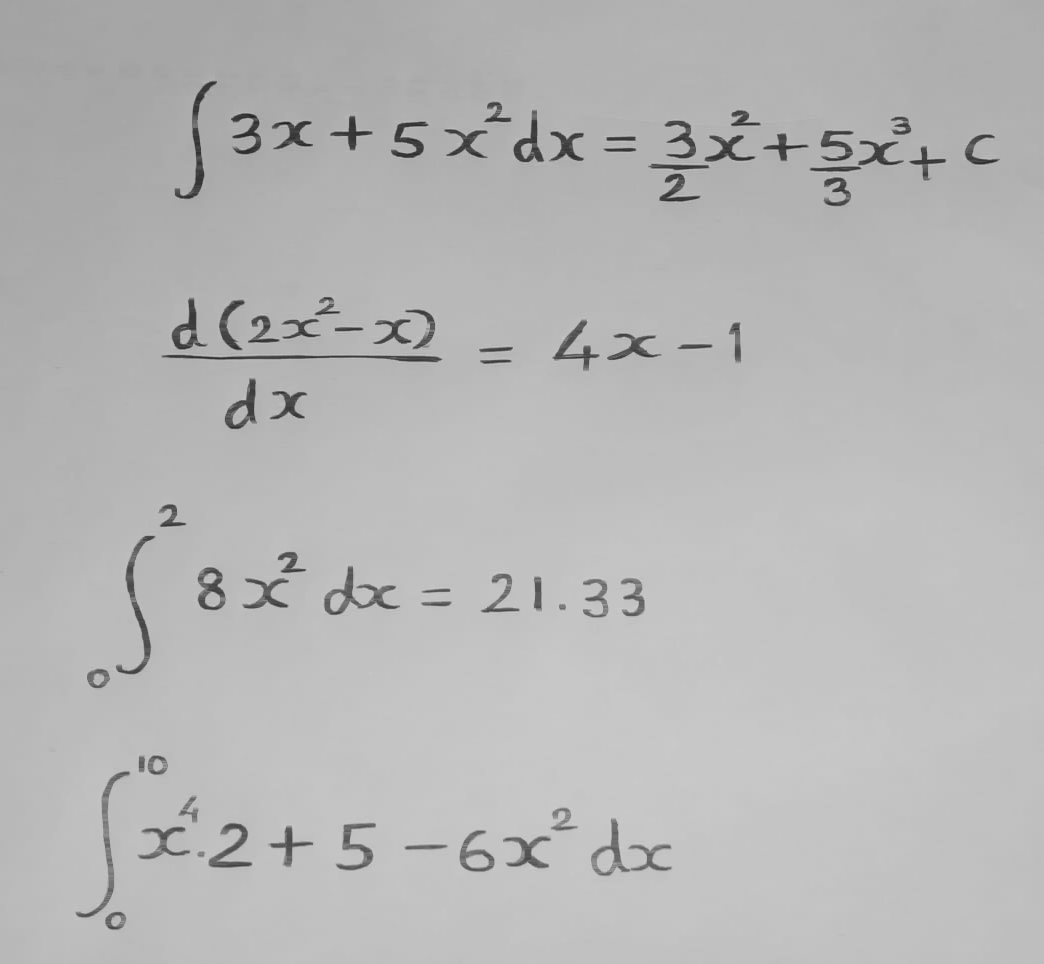 ∫ 3x + 5x² dx = 3/2 x² + 5/3 x³ + C
d(2x² - x)/dx = 4x - 1
∫₀² 8x² dx = 21.33
∫₀¹⁰ x⁴.2 + 5 - 6x² dx